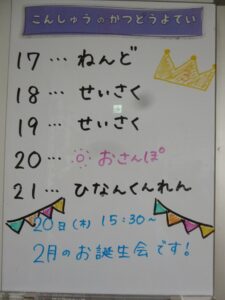 こんしゅうのかつどうよてい
17…ねんど
18…せいさく
19…せいさく
20…おさんぽ
21…ひなんくんれん
20日(木) 15:30~
2月のお誕生会です!